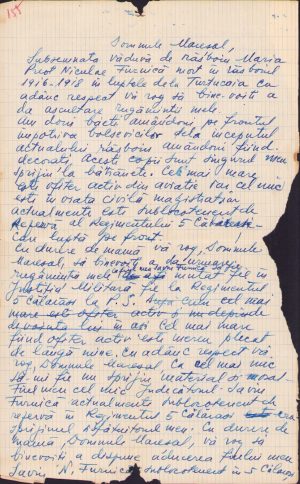 157
Domnule Mareșal,
Subsemnata văduvă de război Maria
Preot Niculae Furnică mort în războiul
1916-1918 în luptele dela Turtucaia cu
adânc respect vă rog să binevoiți a
da ascultare rugăminții mele.
Am doui băeți amândoi pe frontul
împotriva bolșevicilor dela începutul
actualului război amândoui fiind
decorați, acești copii sunt singurul meu
sprijin la bătrânețe. Cel mai mare
este ofițer activ din aviație iar cel mic
este în viața civilă magistrat iar
actualmente este sublocotenent de
rezervă al Regimentului 5 Călărași
care luptă pe front.
Cu durere de mamă vă rog, Domnule
Mareșal, să binevoiți a da urmare
rugăminții mele mutat fie în
Justiția Militară fie la Regimentul
5 Călărași la P. S. cel mai
mare este ofițer activ și
în așa cel mai mare
fiind ofițer activ este mereu plecat
de lângă mine, cu adânc respect vă
rog, Domnule Mareșal, ca cel mai mic
să-mi fie un sprijin material și moral.
Fiul cel mic decăt Saviu
Furnică actualmente sublocotenent de
rezervă în Regimentul 5 Călărași
sprijinul meu. Cu durere de
mamă, Domnule Mareșal, vă rog să
binevoiți a dispune aducerea fiului meu
Saviu N. Furnică sublocotenent în 5 Călărași